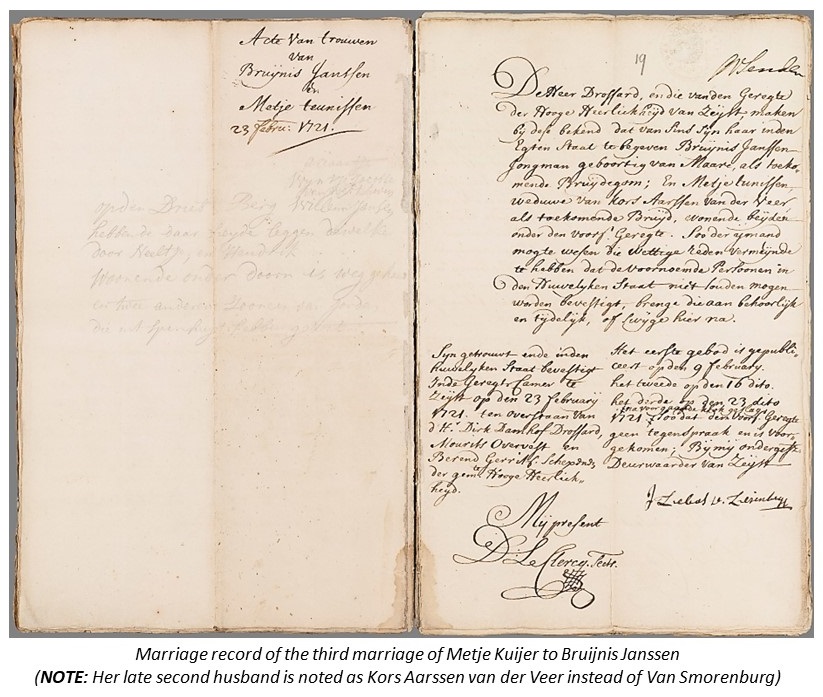 Acte van trouwen
van
Bruijnis Janssen
En
Metje teunissen
23 febru: 1721.
op den
Berg Willem Jansen
hebbende naar Zeijst leggen deselve
door
en Hendrik
woonende onder Doorn is
19
De Heer Drossard, en die van den Geregte
der Hooge Heerlickheyd van Zeijst maken
by dese bekend dat van Sins Syn haar inden
Egten Staat te begeven Bruijnis Janssen
Jongman geboortig van Maare, als toeko-
mende Bruydegom; En Metje tunissen
weduwe van Kors Aarssen van der Veer
als toekomende Bruyd, wonende beyden
onder den voors: Geregte. Soo der ijmand
mogte wesen die wettige reden vermeijnde
te hebben dat de voornoemde Persoonen in
den Huwelyken Staat niet souden mogen
worden bevestigt, brenge die aan behoorlijk
en tydelijk, of swijge hier na.
Syn getrouwt ende inden
Huwelyken Staat bevestigt
Inde Geregts Camer te
Zeijst op den 23 february
1721. ten overstaan van
d Hr. Dirk Damhof Drossard,
Mourits Overvest en
Berend Gerrits: Schepens
der gemte. Hooge Heerlick-
heyd.
Het eerste gebod is gepubli-
ceert op den 9 february.
het tweede op den 16 dito.
het derde op den 23 dito
na voorgaande klok geslag
1721 Soo dat den voors: Geregte
geen tegenspraak en is voor-
gekomen; By mij ondergest:
Deurwaarder van Zeijst
Mij present
D: Le Clercq. Secrs.
Marriage record of the third marriage of Metje Kuijer to Bruijnis Janssen
(NOTE: Her late second husband is noted as Kors Aarssen van der Veer instead of Van Smorenburg)